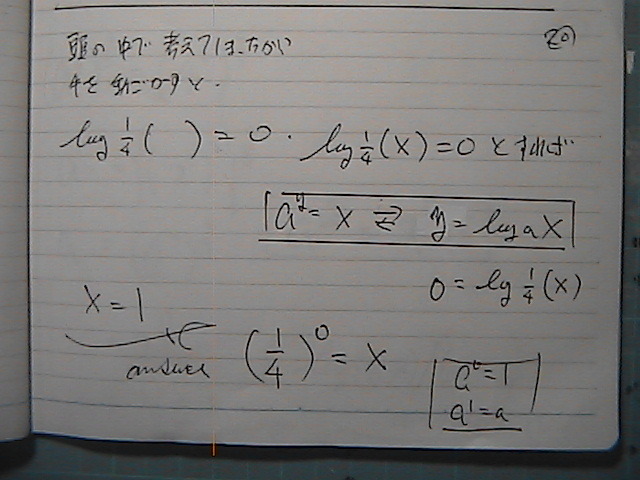 20
頭の中で考えてはだめだ
手を動かすと.
log 1/4 ( ) = 0 . log 1/4 (x) = 0 とすれば
a^y = x ⇄ y = log a x
0 = log 1/4 (x)
x = 1
answer
(1/4)^0 = x
a^0 = 1
a^1 = a